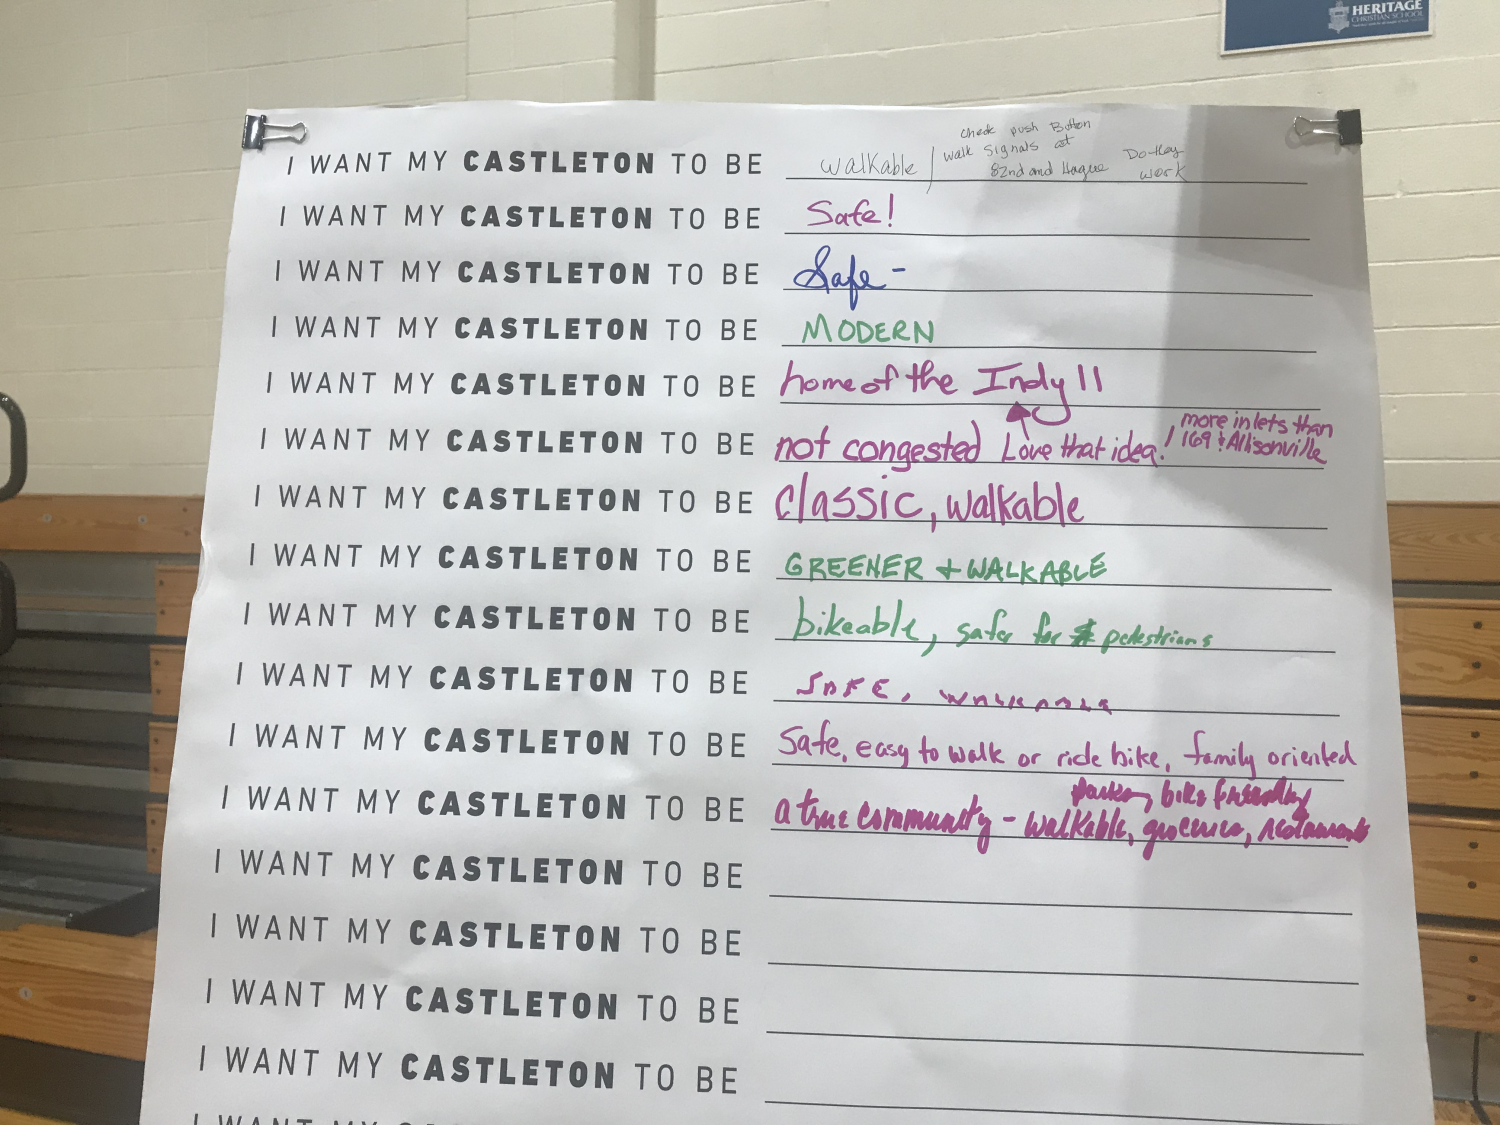 HERITAGE
CHRISTIAN SCHOOL
check push Button
I WANT MY CASTLETON TO BE walkable / walk signals at
82nd and Hague Do they work
I WANT MY CASTLETON TO BE Safe!
I WANT MY CASTLETON TO BE Safe -
I WANT MY CASTLETON TO BE MODERN
I WANT MY CASTLETON TO BE home of the Indy 11
I WANT MY CASTLETON TO BE not congested Love that idea! more inlets than
I69 & Allisonville
I WANT MY CASTLETON TO BE classic, walkable
I WANT MY CASTLETON TO BE GREENER + WALKABLE
I WANT MY CASTLETON TO BE bikeable, safer for pedestrians
I WANT MY CASTLETON TO BE SAFE, WALKABLE
I WANT MY CASTLETON TO BE Safe, easy to walk or ride bike, family oriented
parks, bike friendly
I WANT MY CASTLETON TO BE a true community - walkable, groceries, restaurants
I WANT MY CASTLETON TO BE
I WANT MY CASTLETON TO BE
I WANT MY CASTLETON TO BE
I WANT MY CASTLETON TO BE
I WANT MY